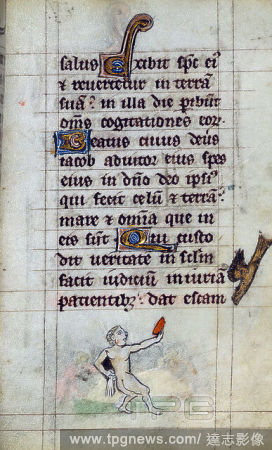 salus Exibit spc ei
& revertetur in terrā
suā: in illa die pibūt
oms cogitationes eor
Beatus cuius deus
iacob adiutor eius spes
eius in dño deo ipsi
qui fecit celū & terrā:
mare & omīa que in
eis sūnt Qui custo
dit veritatē in sclm
facit iudiciū iniuriā
patientib: dat escam
TPG
www.tpgnews.com / 達志影像